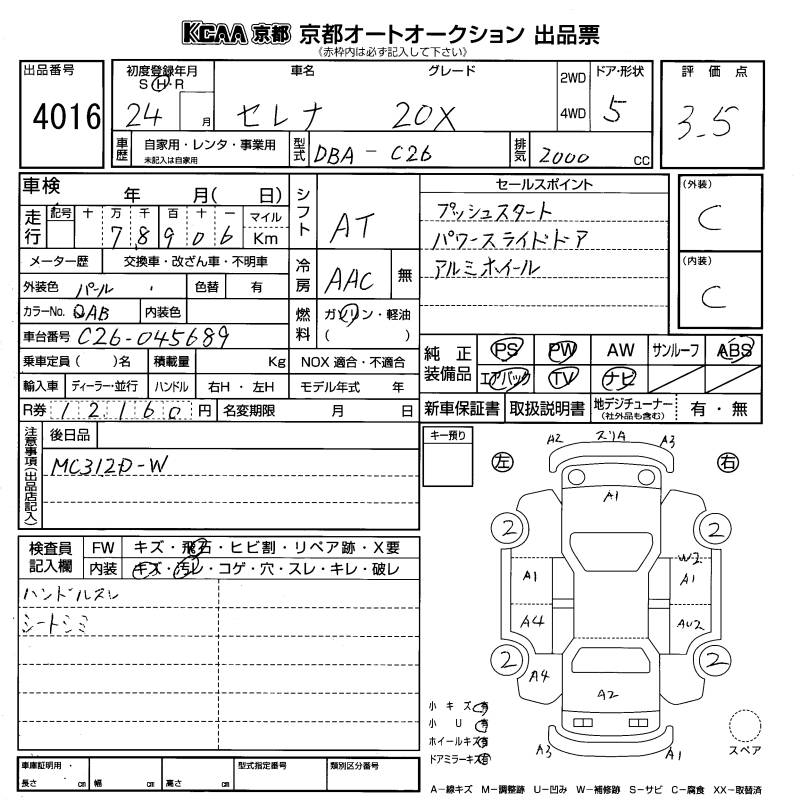 KCAA 京都 京都オートオークション 出品票
《赤枠内は必ず記入して下さい》
出品番号
4016
初度登録年月
S・H・R
24 月
車名
セレナ
グレード
20X
2WD
4WD
ドア・形状
5
評価点
3.5
車歴
自家用・レンタ・事業用
未記入は自家用
型式
DBA-C26
排気
2000 CC
車検 年 月( 日)
走行
記号 十 万 千 百 十 一 マイル
7 8 9 0 6 Km
メーター歴 交換車・改ざん車・不明車
外装色 パール 色替 有
カラーNo. QAB 内装色
車台番号 C26-045689
乗車定員( )名 積載量 Kg NOX 適合・不適合
輸入車 ディーラー・並行 ハンドル 右H・左H モデル年式 年
R券 12160 円 名変期限 月 日
シフト
AT
冷房
AAC 無
燃料
ガソリン・軽油
( )
セールスポイント
プッシュスタート
パワースライドドア
アルミホイール
(外装)
C
(内装)
C
純正装備品
PS PW AW サンルーフ ABS
エアバック TV ナビ
新車保証書 取扱説明書 地デジチューナー
(社外品も含む)
有・無
注意事項(出品店記入)
後日品
MC312D-W
キー預り
検査員記入欄
FW キズ・飛石・ヒビ割・リペア跡・X要
内装 キズ・汚レ・コゲ・穴・スレ・キレ・破レ
ハンドルスレ
シートシミ
左
右
A2 スリA A3
A1
2 2
W2
A1 A1
A4 AU2
2 2
A4 A2
A3 A1
小キズ 有
小U 有
ホイールキズ 有
ドアミラーキズ 有
スペア
車庫証明用
長さ cm 幅 cm 高さ cm
型式指定番号
類別区分番号
A-線キズ M-調整跡 U-凹み W-補修跡 S-サビ C-腐食 XX-取替済